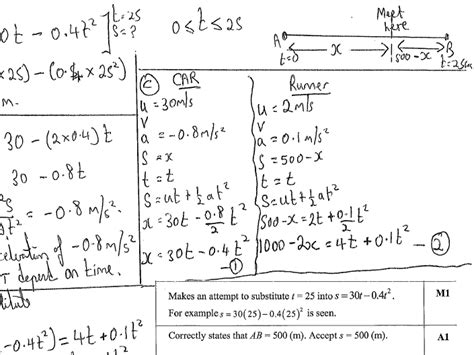 0t - 0.4t²] t=25
S=?
0 ≤ t ≤ 25
Meet here
A B
t=0 x 500-x t=25
×25) - (0.4 × 25²)
m.
30 - (2×0.4)t
30 - 0.8t
= -0.8 m/s²
of -0.8 m/s²
T depend on time.
-0.4t²) = 4t + 0.1t²
(C) CAR
u = 30m/s
V
a = -0.8m/s²
S = x
t = t
S = ut + ½at²
x = 30t - 0.8/2 t²
x = 30t - 0.4t² -①
Runner
u = 2m/s
V
a = 0.1m/s²
S = 500-x
t = t
S = ut + ½at²
500-x = 2t + 0.1/2 t²
1000 - 2x = 4t + 0.1t² -②
Makes an attempt to substitute t = 25 into s = 30t - 0.4t². M1
For example s = 30(25) - 0.4(25)² is seen.
Correctly states that AB = 500 (m). Accept s = 500 (m). A1